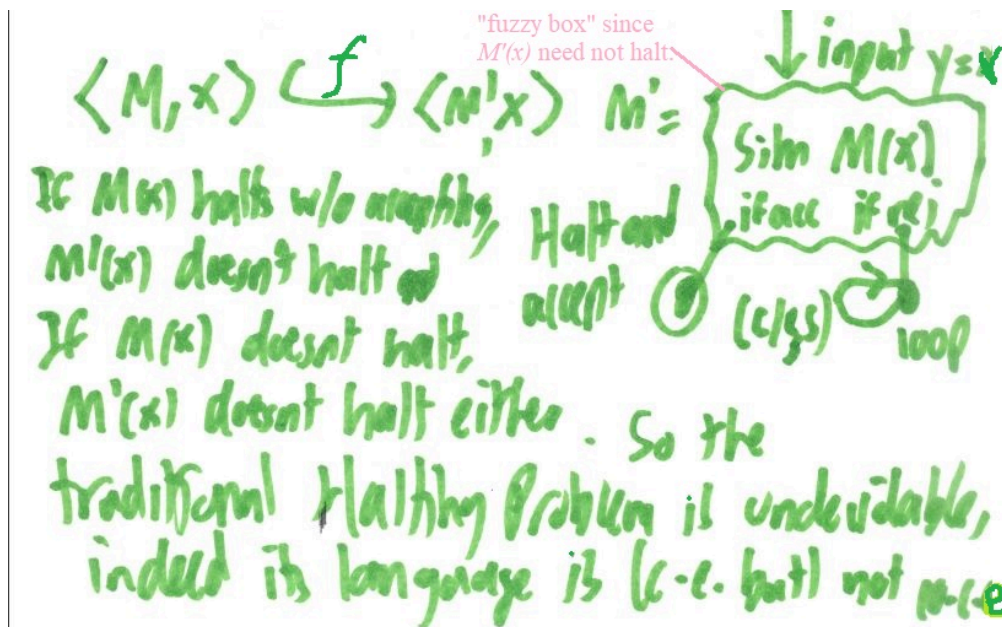 "fuzzy box" since
M'(x) need not halt.
input y = x
⟨M, x⟩ f ⟨M', x⟩ M' =
Sim M(x)
if acc if rej
If M(x) halts w/o accepting,
M'(x) doesn't halt and
If M(x) doesn't halt,
M'(x) doesn't halt either. So the
traditional Halting Problem is undecidable,
indeed its language is (c.e. but) not co-c.e
Halt and
accept
loop